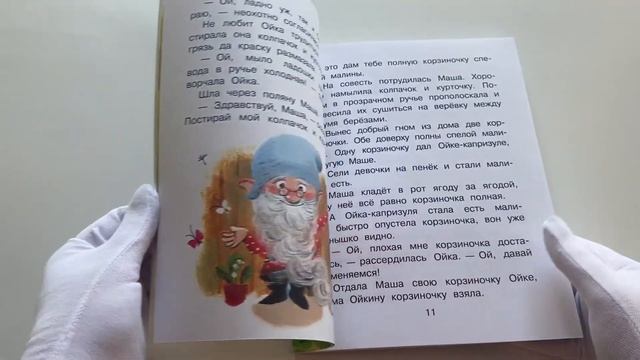 — Ой, ладно уж, так и
раю, — неохотно
Не любит Ойка
стирала она колпачок и
грязь да краску
— Ой, мыло
вода в ручье холодная
ворчала Ойка.
Шла через поляну Маша.
— Здравствуй, Маша, —
Постирай мой колпачок и
это дам тебе полную корзиночку спе-
малины.
На совесть потрудилась Маша. Хоро-
намылила колпачок и курточку. По-
в прозрачном ручье прополоскала и
сушиться на верёвку между
берёзами.
Вынес добрый гном из дома две кор-
Обе доверху полны спелой мали-
Одну корзиночку дал Ойке-капризуле,
Маше.
Сели девочки на пенёк и стали мали-
есть.
Маша кладёт в рот ягоду за ягодой,
у неё всё равно корзиночка полная.
А Ойка-капризуля стала есть мали-
быстро опустела корзиночка, вон уже
видно.
— Ой, плохая мне корзиночка доста-
— рассердилась Ойка. — Ой, давай
Отдала Маша свою корзиночку Ойке,
Ойкину корзиночку взяла.
11